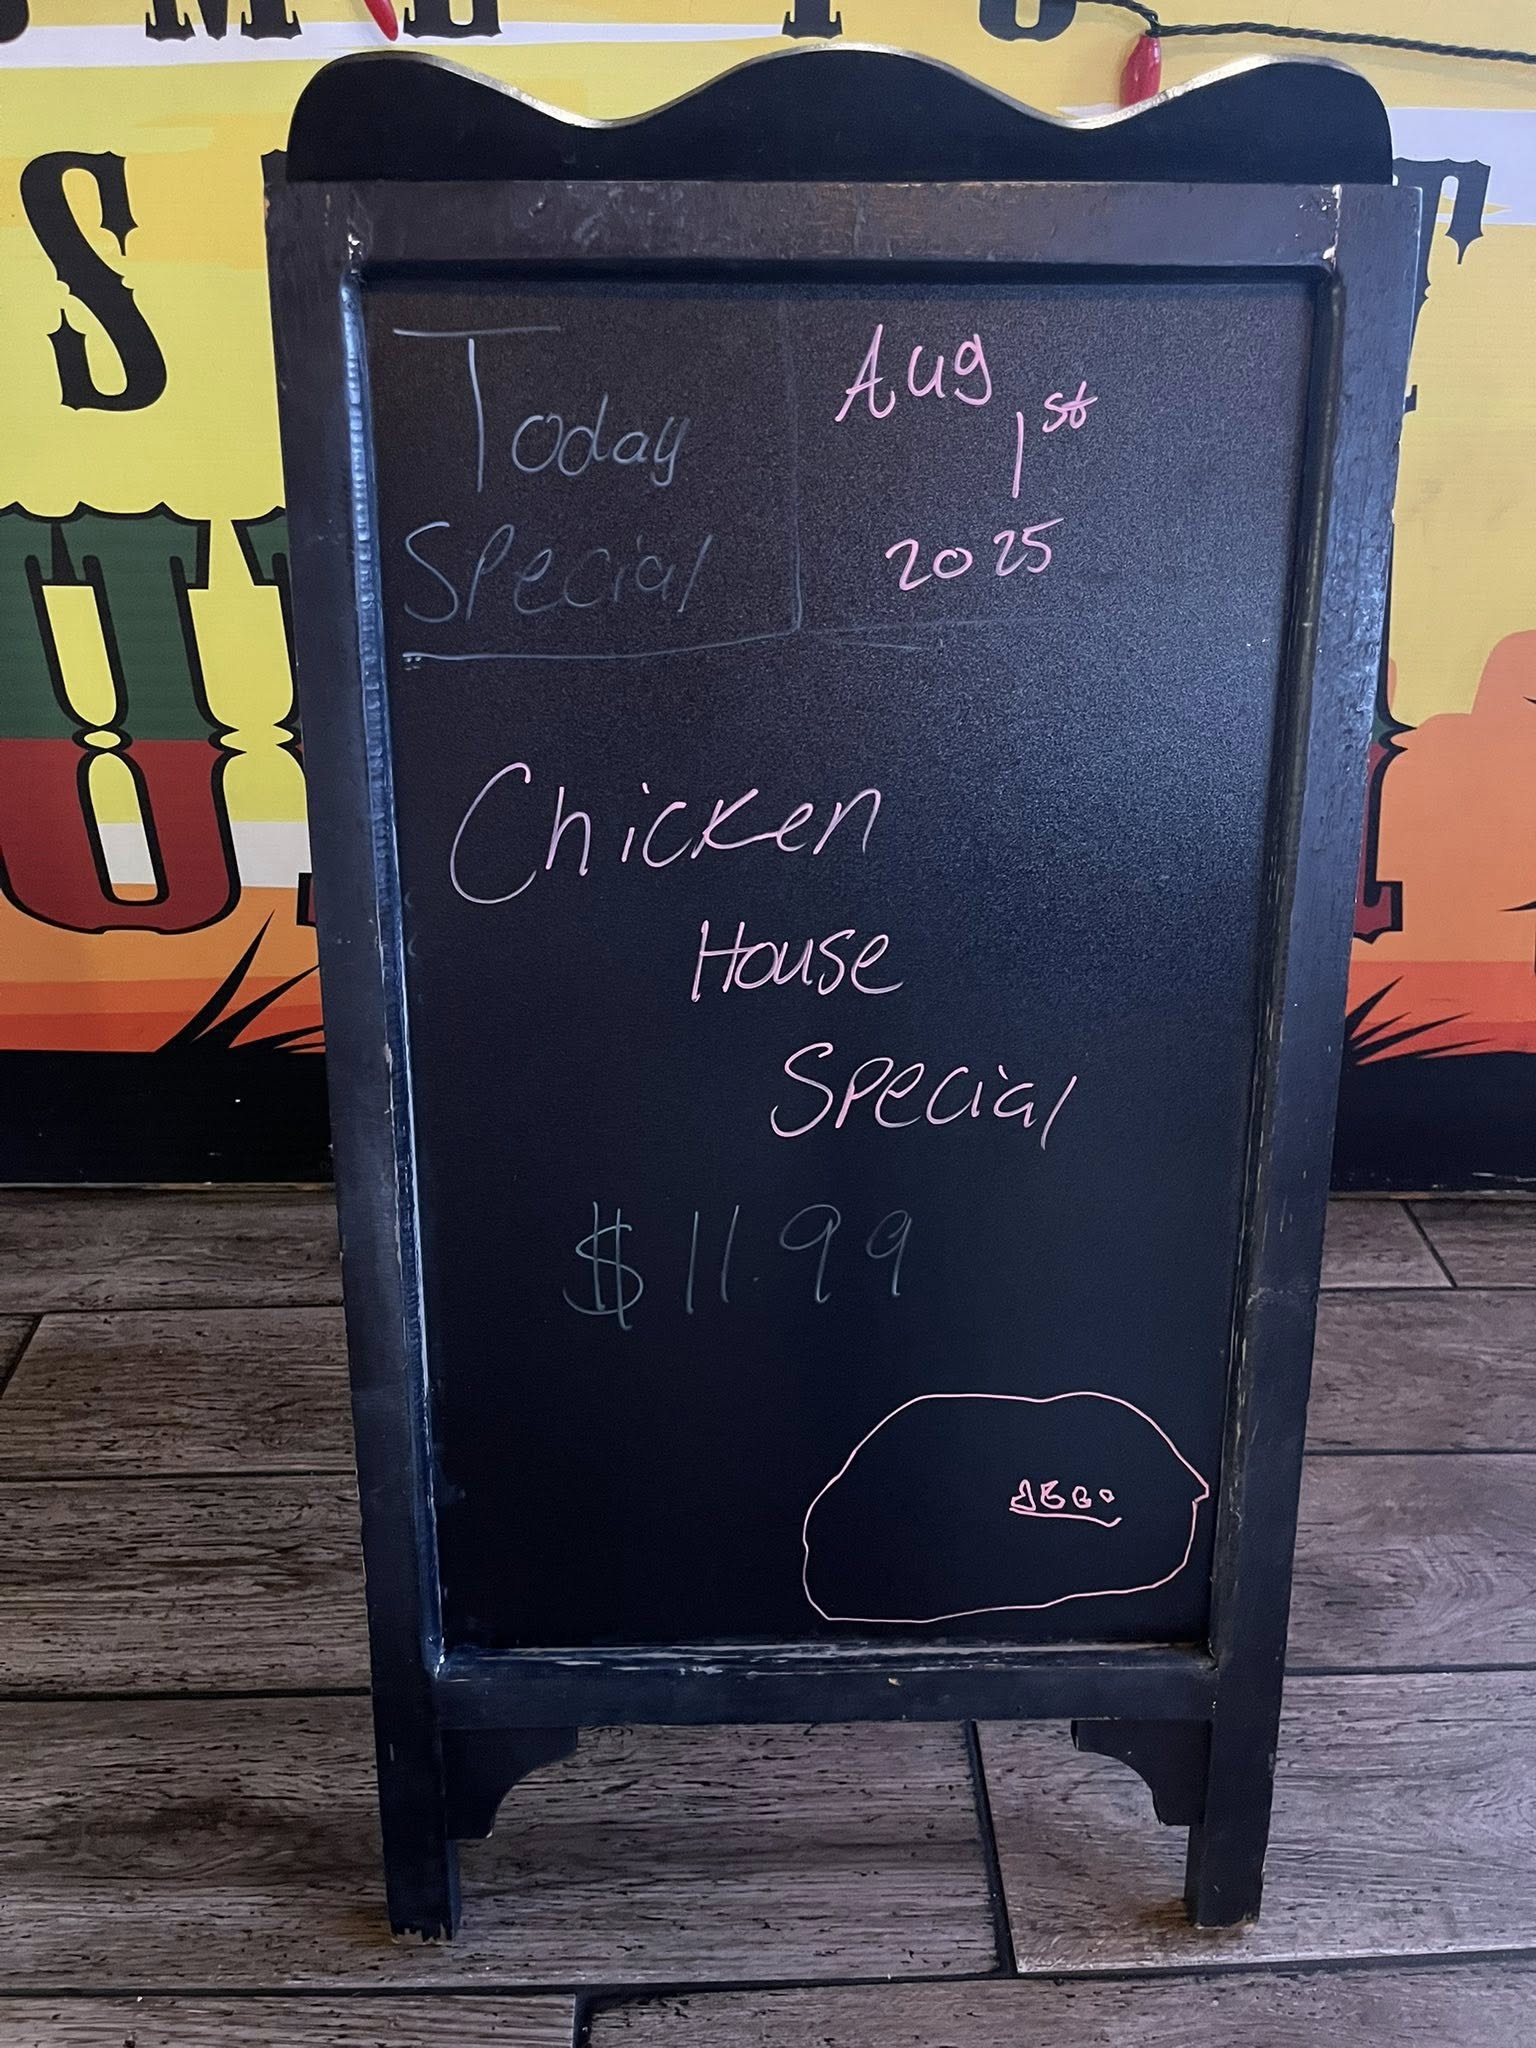 Today
Special
Aug
1st
2025
Chicken
House
Special
$11.99